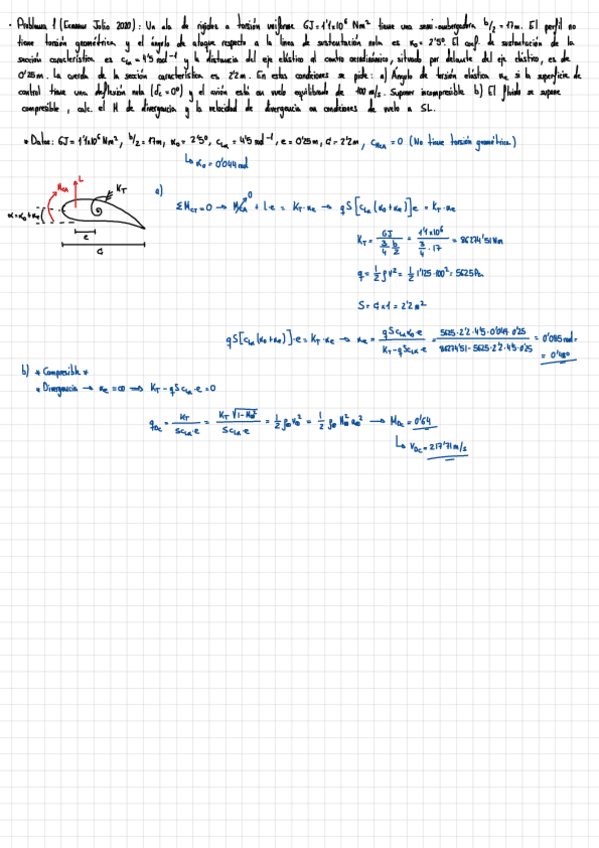 · Problema 1 (Examen Julio 2020): Un ala de rigidez a torsión uniforme GJ = 1'1x10⁶ Nm² tiene una semi-envergadura b/2 = 17m. El perfil no
tiene torsión geométrica y el ángulo de ataque respecto a la línea de sustentación nula es α₀ = 2'5º. El coef. de sustentación de la
sección característica es cLα = 4'5 rad⁻¹ y la distancia del eje elástico al centro aerodinámico, situado por delante del eje elástico, es de
0'25m. La cuerda de la sección característica es 2'2m. En estas condiciones se pide: a) Ángulo de torsión elástica αe si la superficie de
control tiene una deflexión nula (δc = 0º) y el avión está en vuelo equilibrado de 100 m/s. Suponer incompresible b) El fluido se supone
compresible, calc. el M de divergencia y la velocidad de divergencia en condiciones de vuelo a SL.
* Datos: GJ = 1'1x10⁶ Nm², b/2 = 17m, α₀ = 2'5º, cLα = 4'5 rad⁻¹, e = 0'25m, c = 2'2m, cMCA = 0 (No tiene torsión geométrica)
↳ α₀ = 0'044 rad
MCA L KT
α = α₀ + αe
e
c
a)
ΣMCT = 0 → MCA⁰ + L·e = KT·αe → qS[cLα(α₀+αe)]e = KT·αe
KT = GJ / (3/4 · b/2) = 1'1x10⁶ / (3/4 · 17) = 86274'51 Nm
q = 1/2 ρv² = 1/2 1'125·100² = 5625 Pa
S = c x 1 = 2'2 m²
qS[cLα(α₀+αe)]·e = KT·αe → αe = qScLα α₀·e / (KT - qScLα·e) = 5625·2'2·4'5·0'044·0'25 / (86274'51 - 5625·2'2·4'5·0'25) = 0'0085 rad =
= 0'48º
b) * Compresible *
* Divergencia → αe = ∞ ⟹ KT - qScLα·e = 0
qDC = KT / (ScLα·e) = KT √(1-M₀²) / (ScLα·e) = 1/2 ρ₀v₀² = 1/2 ρ₀ M₀² a₀² → MDC = 0'64
↳ VDC = 217'71 m/s